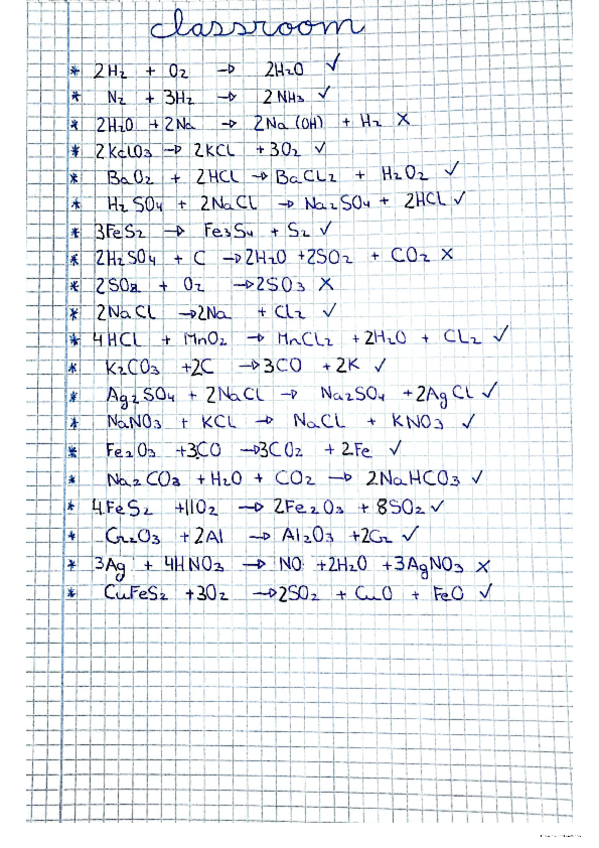 classroom
* 2H₂ + O₂ → 2H₂O ✓
* N₂ + 3H₂ → 2NH₃ ✓
* 2H₂O + 2Na → 2Na(OH) + H₂ X
* 2KClO₃ → 2KCL + 3O₂ ✓
* BaO₂ + 2HCL → BaCL₂ + H₂O₂ ✓
* H₂SO₄ + 2NaCL → Na₂SO₄ + 2HCL ✓
* 3FeS₂ → Fe₃S₄ + S₂ ✓
* 2H₂SO₄ + C → 2H₂O + 2SO₂ + CO₂ X
* 2SO₂ + O₂ → 2SO₃ X
* 2NaCL → 2Na + CL₂ ✓
* 4HCL + MnO₂ → MnCL₂ + 2H₂O + CL₂ ✓
* K₂CO₃ + 2C → 3CO + 2K ✓
* Ag₂SO₄ + 2NaCL → Na₂SO₄ + 2AgCL ✓
* NaNO₃ + KCL → NaCL + KNO₃ ✓
* Fe₂O₃ + 3CO → 3CO₂ + 2Fe ✓
* Na₂CO₃ + H₂O + CO₂ → 2NaHCO₃ ✓
* 4FeS₂ + 11O₂ → 2Fe₂O₃ + 8SO₂ ✓
* Cr₂O₃ + 2Al → Al₂O₃ + 2Cr ✓
* 3Ag + 4HNO₃ → NO + 2H₂O + 3AgNO₃ X
* CuFeS₂ + 3O₂ → 2SO₂ + CuO + FeO ✓